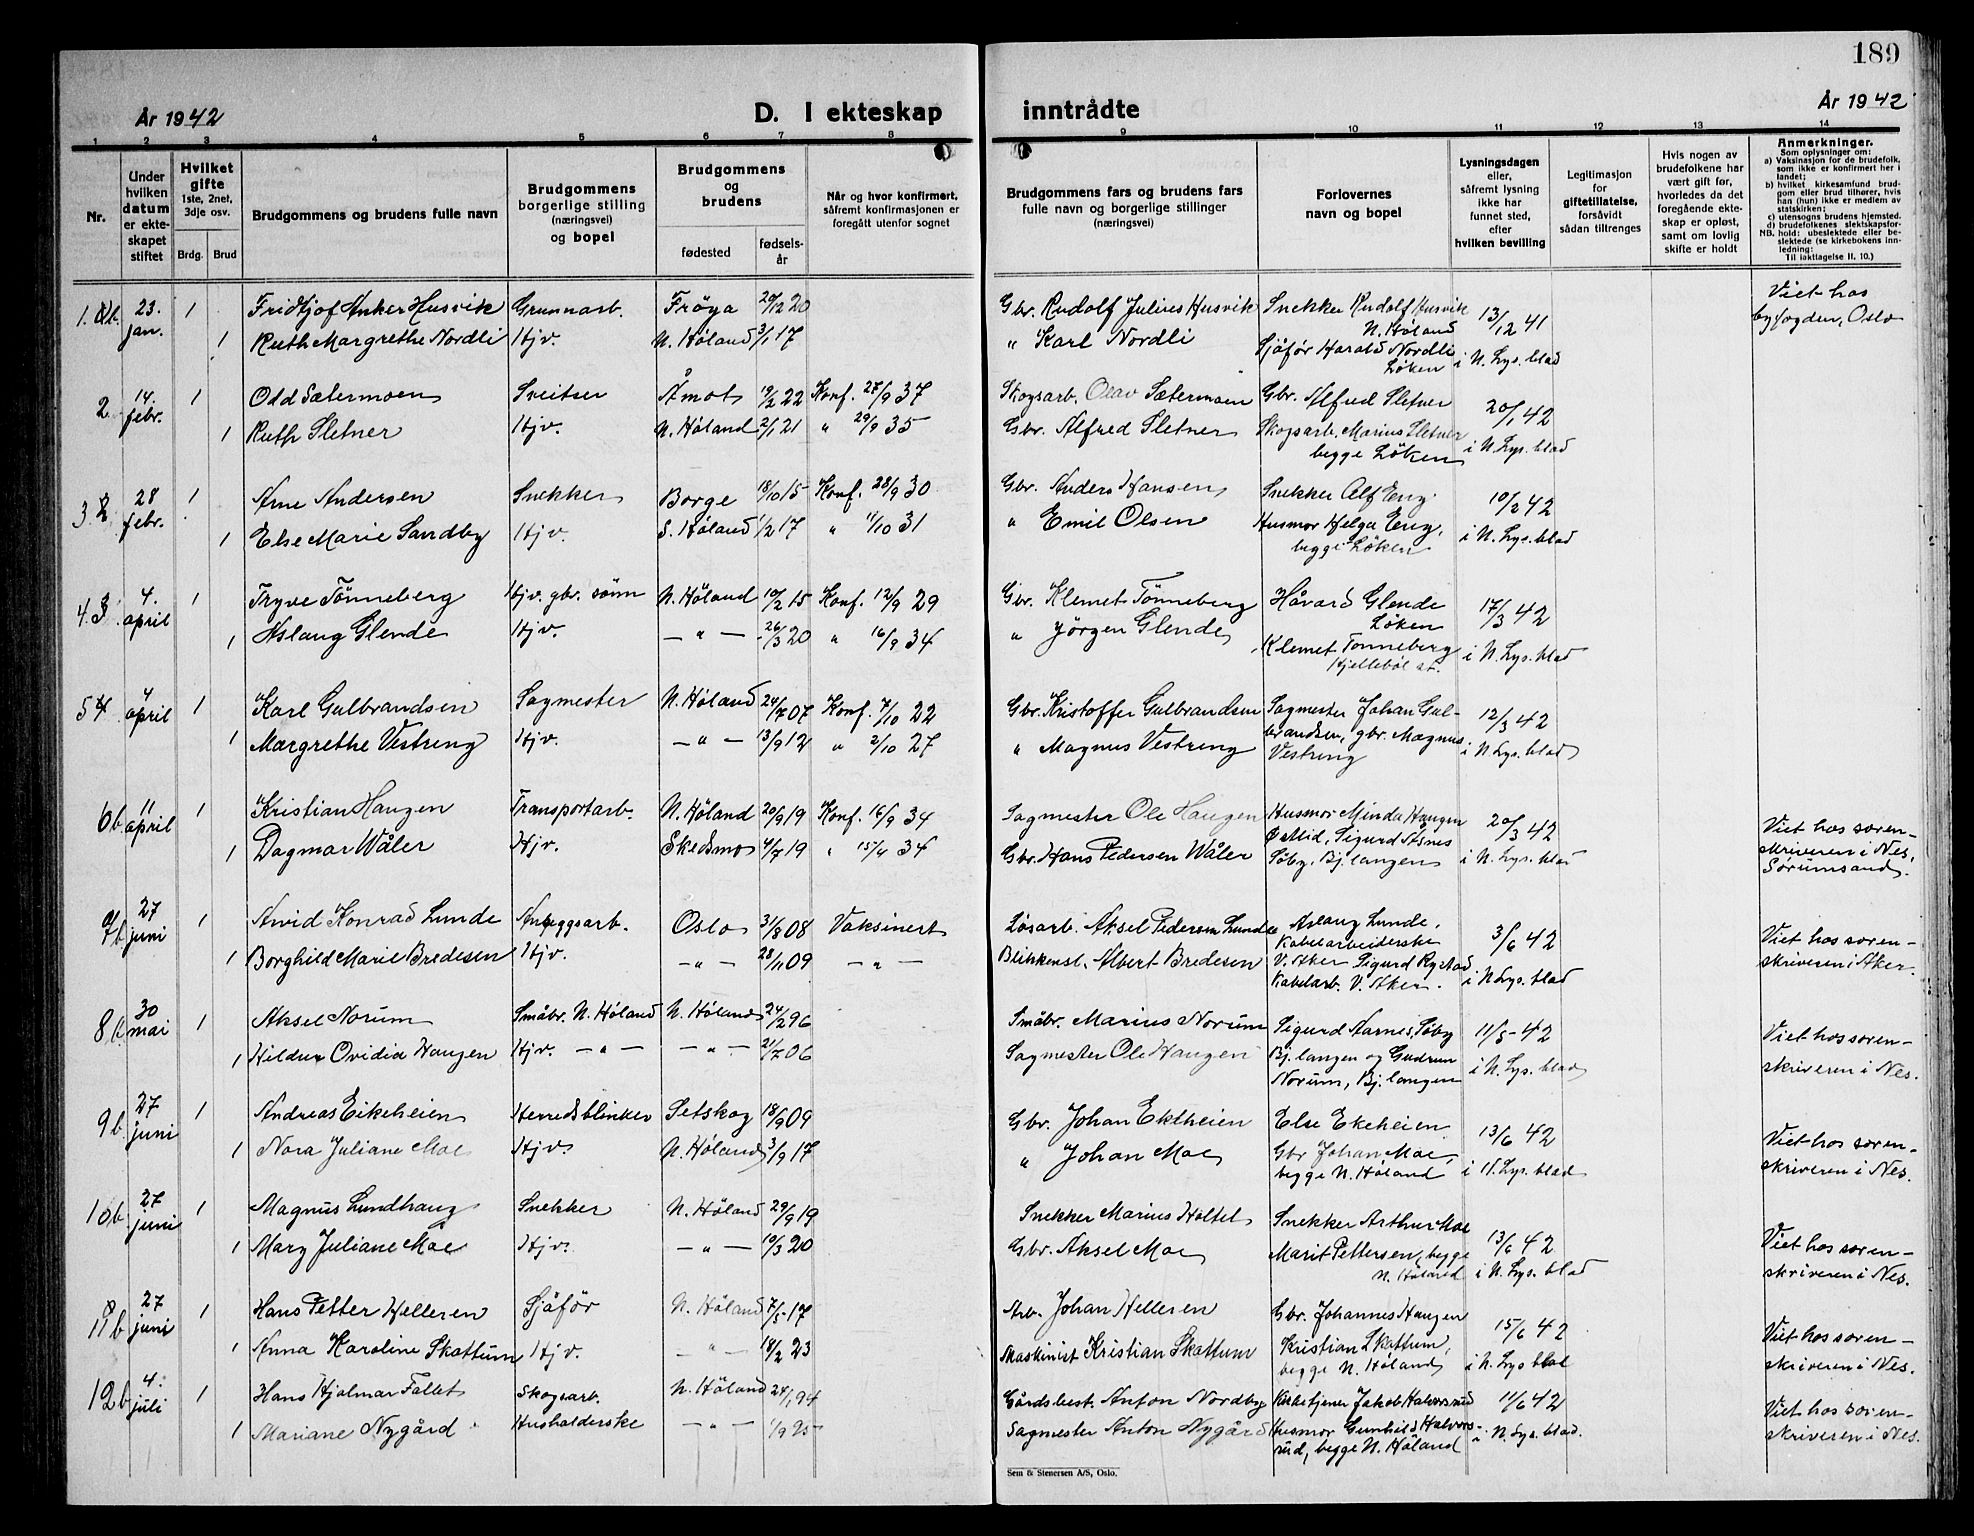 189
År 1942
D. I ekteskap
inntrådte
År 1942
1 2 3 4 5 6 7 8 9 10 11 12 13 14
Nr.
Under
hvilken
datum
er ekte-
skapet
stiftet
Hvilket
gifte
1ste, 2net,
3dje osv.
Brdg. Brud
Brudgommens og brudens fulle navn
Brudgommens
borgerlige stilling
(næringsvei)
og bopel
Brudgommens
og
brudens
fødested
fødsels-
år
Når og hvor konfirmert,
såfremt konfirmasjonen er
foregått utenfor sognet
Brudgommens fars og brudens fars
fulle navn og borgerlige stillinger
(næringsvei)
Forlovernes
navn og bopel
Lysningsdagen
eller,
såfremt lysning
ikke har
funnet sted,
efter
hvilken bevilling
Legitimasjon
for
giftetillatelse,
forsåvidt
sådan tiltrenges
Hvis nogen av
brudefolkene har
vært gift før,
hvorledes da det
foregående ekte-
skap er opløst,
samt om lovlig
skifte er holdt
Anmerkninger.
Som oplysninger om:
a) Vaksinasjon for de brudefolk,
som ikke er konfirmert her i
landet;
b) hvilket kirkesamfund brud-
gom eller brud tilhører, hvis
han (hun) ikke er medlem av
statskirken;
c) utensogns brudens hjemsted.
d) brudefolkenes slektskapsfor-
NB. hold: ubeslektede eller be-
slektede (se kirkebokens inn-
ledning:
Til iakttagelse II. 10.)
1. b. 23. jan. 1 Fridtjof Anker Husvik Grunnarb. Fröya 20/12 20 Gbr. Rudolf Julius Husvik Snekker Rudolf Husvik N. Höland 13/12 41 Viet hos
1 Ruth Margrethe Nordli Hjv. N. Höland 3/1 17 " Karl Nordli Sjåför Harald Nordli Löken i N. Lys. blad byfogden, Oslo
2 14. febr. 1 Odd Sætermoen Sveitser Åmot 19/2 22 Konf. 27/9 37 Skogsarb. Olav Sætermoen Gbr. Alfred Sletner 20/1 42
1 Ruth Sletner Hjv. N. Höland 2/1 21 " 29/9 35 Gbr. Alfred Sletner Skogsarb. Marius Sletner begge Löken i N. Lys. blad
3 28 febr. 1 Arne Andersen Snekker Borge 18/10 15 Konf. 28/9 30 Gbr. Anders Hansen Snekker Alf Eng. 10/2 42
1 Else Marie Sandby Hjv. S. Höland 1/2 17 " 11/10 31 " Emil Olsen Husmor Helga Eng, begge Löken i N. Lys. blad
4. 3 4. april 1 Tryve Tönneberg Hjv. gbr. sönn N. Höland 10/2 15 Konf. 12/9 29 Gbr. Klemet Tönneberg Håvard Glende Löken 17/3 42
1 Aslaug Glende Hjv. — " — 26/3 20 " 16/9 34 " Jörgen Glende Klemet Tönneberg Hjellebøl st. i N. Lys. blad
5 4 4 april 1 Karl Gulbrandsen Sagmester N. Höland 24/7 07 Konf. 7/10 22 Gbr. Kristoffer Gulbrandsen Sagmester Johan Gul- 12/3 42
1 Margrethe Vestreng Hjv. — " — 13/9 12 " 2/10 27 " Magnus Vestreng brandsen, gbr. Magnus Vestreng i N. Lys. blad
6 b. 11 april 1 Kristian Haugen Transportarb. N. Höland 20/9 19 Konf. 16/9 34 Sagmester Ole Haugen Husmor Minda Haugen 20/3 42 Viet hos soren-
1 Dagmar Wåler Hjv. Skedsmo 4/7 19 " 15/4 34 Gbr. Hans Pedersen Wåler Østlid, Sigurd Åsnes Søby, Bj. langen i N. Lys. blad skriveren i Nes, Sørumsand.
7 b 27 juni 1 Arvid Konrad Lunde Anleggsarb. Oslo 31/8 08 Vaksinert Løsarb. Aksel Pedersen Lunde Aslaug Lunde, Kabelarbeiderske 3/6 42 Viet hos soren-
1 Borghild Marie Bredesen Hjv. — " — 28/11 09 — " — Blikkensl. Albert Bredesen V. Aker Sigurd Rystad Kabelarb. V. Aker. i N. Lys. blad skriveren i Aker.
8 b 30 mai 1 Aksel Norum Småbr. N. Höland N. Höland 24/2 96 Småbr. Marius Norum Sigurd Aarnes, Søby 11/5-42 Viet hos soren-
1 Hildur Ovidia Haugen Hjv. — " — — " — 21/7 06 Sagmester Ole Haugen Bj. langen og Gudrun Norum, Bj. langen i N. Lys. blad skriveren i Nes.
9 b. 27 juni 1 Andreas Eikeheien Herredsblinker Setskog 18/9 09 Gbr. Johan Ekeheien Else Ekeheien 13/6 42 Viet hos soren-
1 Nora Juliane Moe Hjv. N. Höland 3/9 17 " Johan Moe Gbr Johan Moe, begge N. Höland i N. Lys. blad skriveren i Nes.
10 b. 27 juni 1 Magnus Lundhaug Snekker N. Höland 29/9 19 Snekker Marius Holtet Snekker Arthur Moe 13/6 42 Viet hos soren-
1 Mary Juliane Moe Hjv. — " — 10/3 20 Gbr. Aksel Moe Marit Pettersen, begge N. Höland i N. Lys. blad skriveren i Nes.
11 b 27 juni 1 Hans Petter Helleren Sjåför N. Höland 7/5-17 Arb. Johan Helleren Gbr. Johannes Haugen 15/6 42 Viet hos soren-
1 Anna Karoline Skattum Hjv. — " — 18/2 23 Maskinist Kristian Skattum Kristian Skattum, begge N. Höland i N. Lys blad skriveren i Nes.
12 b 4. juli 1 Hans Hjalmar Fallet Skogsarb. N. Höland 24/1 94 Gårdsbest. Anton Nordby Kirketjener Jakob Halvorsrud 11/6 42 Viet hos soren-
1 Mariane Nygård Husholderske — " — 1/9 25 Sagmester Anton Nygård Husmor Gunhild Halvors- rud, begge N. Höland i N. Lys. blad. skriveren i Nes.
Sem & Stenersen A/S, Oslo.